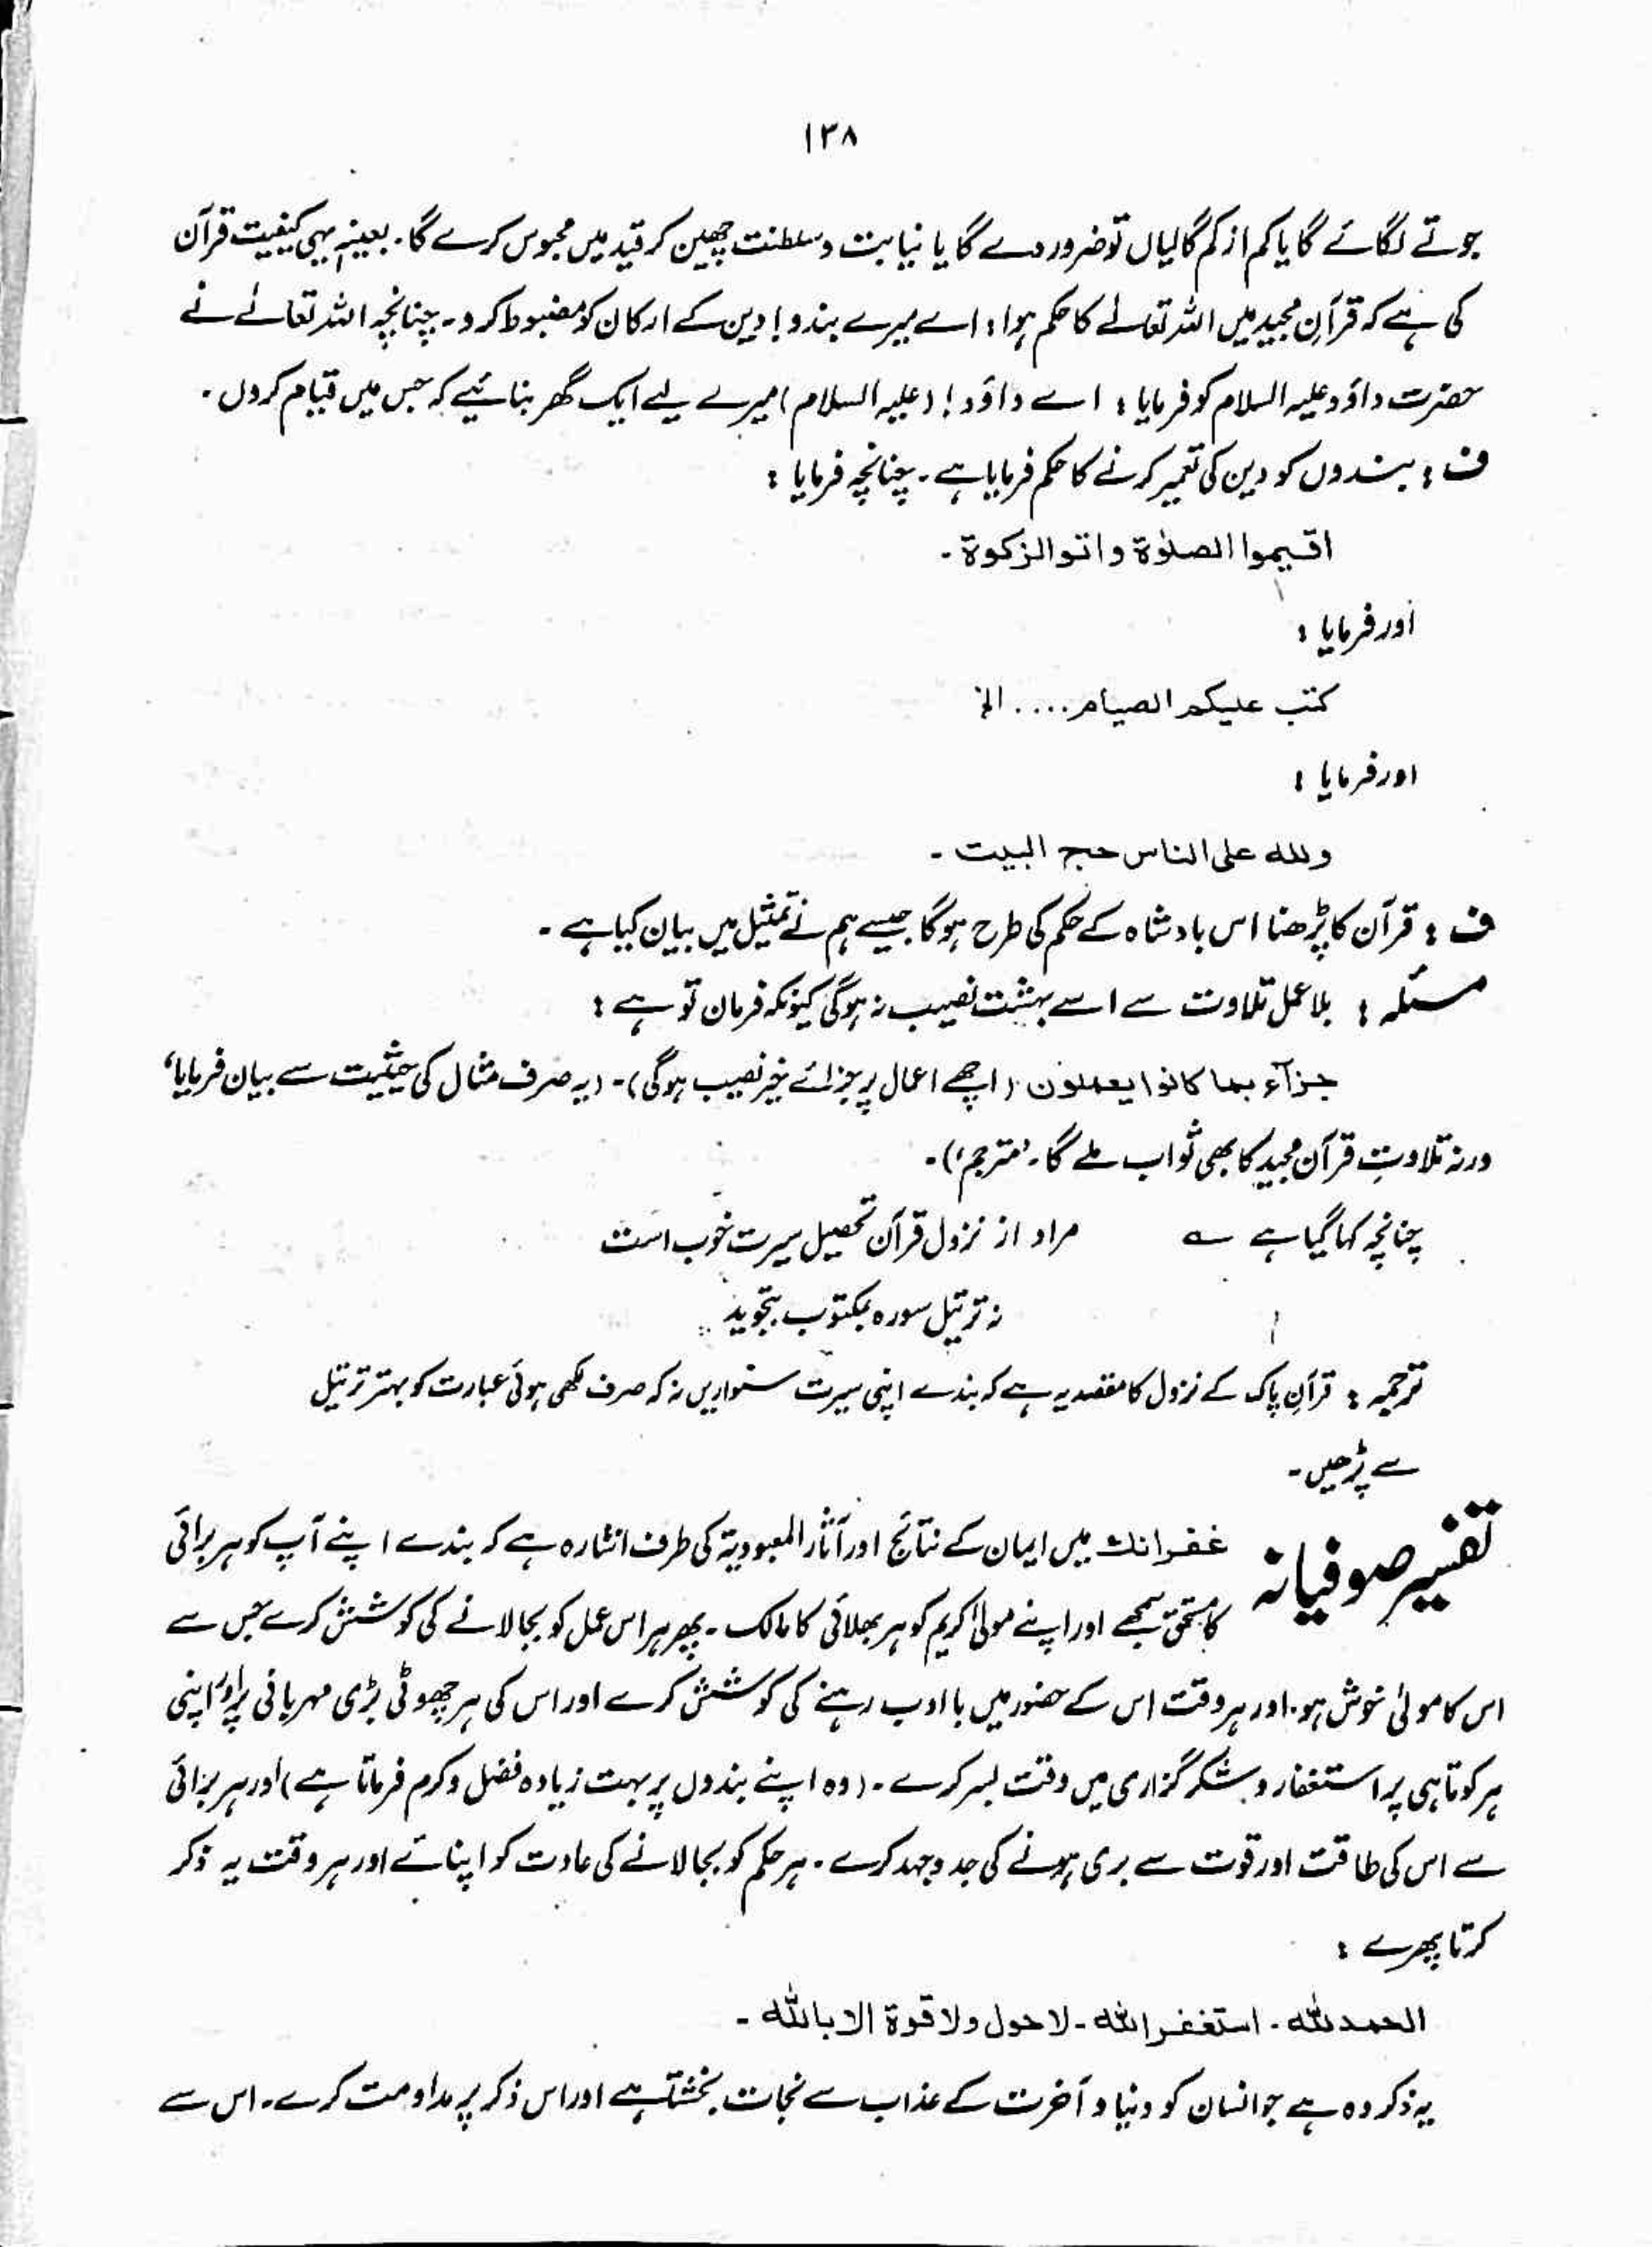 ۱۳۸
جوتے لگائے گا یا کم از کم گالیاں تو ضرور دے گا یا نیابت و سلطنت چھین کر قید میں محبوس کرے گا۔ بعینہٖ یہی کیفیت قرآن
کی ہے کہ قرآنِ مجید میں اللہ تعالےٰ کا حکم ہوا : اے میرے بندو ! دین کے ارکان کو مضبوط کرو۔ چنانچہ اللہ تعالےٰ نے
حضرت داؤد علیہ السلام کو فرمایا : اے داؤد ! (علیہ السلام) میرے لیے ایک گھر بنائیے کہ جس میں قیام کروں۔
ف : بندوں کو دین کی تعمیر کرنے کا حکم فرمایا ہے۔ چنانچہ فرمایا :
اقیموا الصلوٰة و اتو الزکوة۔
اور فرمایا :
کتب علیکم الصیام .... الخ
اور فرمایا :
وللہ علی الناس حج البیت۔
ف : قرآن کا پڑھنا اس بادشاہ کے حکم کی طرح ہوگا جیسے ہم نے تمثیل میں بیان کیا ہے۔
مسئلہ : بلا عمل تلاوت سے اسے بہشت نصیب نہ ہوگی کیونکہ فرمان تو ہے :
جزآء بما کانوا یعملون (اچھے اعمال پر جزائے خیر نصیب ہوگی)۔ (یہ صرف مثال کی حیثیت سے بیان فرمایا،
ورنہ تلاوتِ قرآن مجید کا بھی ثواب ملے گا۔ ’مترجم‘)۔
چنانچہ کہا گیا ہے ؎ مراد از نزول قرآن تحصیل سیرت خوب است
نہ ترتیل سورہ بمکتوب بتجوید
ترجمہ : قرآنِ پاک کے نزول کا مقصد یہ ہے کہ بندے اپنی سیرت سنواریں نہ کہ صرف لکھی ہوئی عبارت کو بہتر ترتیل
سے پڑھیں۔
تفسیر صوفیانہ غفرانک میں ایمان کے نتائج اور آثار المعبودیة کی طرف اشارہ ہے کہ بندے اپنے آپ کو ہر برائی
کا مستحق سمجھے اور اپنے مولیٰ کریم کو ہر بھلائی کا مالک۔ پھر ہر اس عمل کو بجا لانے کی کوشش کرے جس سے
اس کا مولیٰ خوش ہو۔ اور ہر وقت اس کے حضور میں با ادب رہنے کی کوشش کرے اور اس کی ہر چھوٹی بڑی مہربانی پر اور اپنی
ہر کوتاہی پر استغفار و شکر گزاری میں وقت بسر کرے۔ (وہ اپنے بندوں پر بہت زیادہ فضل و کرم فرماتا ہے) اور ہر برائی
سے اس کی طاقت اور قوت سے بری ہونے کی جد و جہد کرے۔ ہر حکم کو بجا لانے کی عادت کو اپنائے اور ہر وقت یہ ذکر
کرتا پھرے :
الحمد للہ۔ استغفر اللہ۔ لا حول ولا قوة الا باللہ۔
یہ ذکر وہ ہے جو انسان کو دنیا و آخرت کے عذاب سے نجات بخشتا ہے اور اس ذکر پر مداومت کرے۔ اس سے